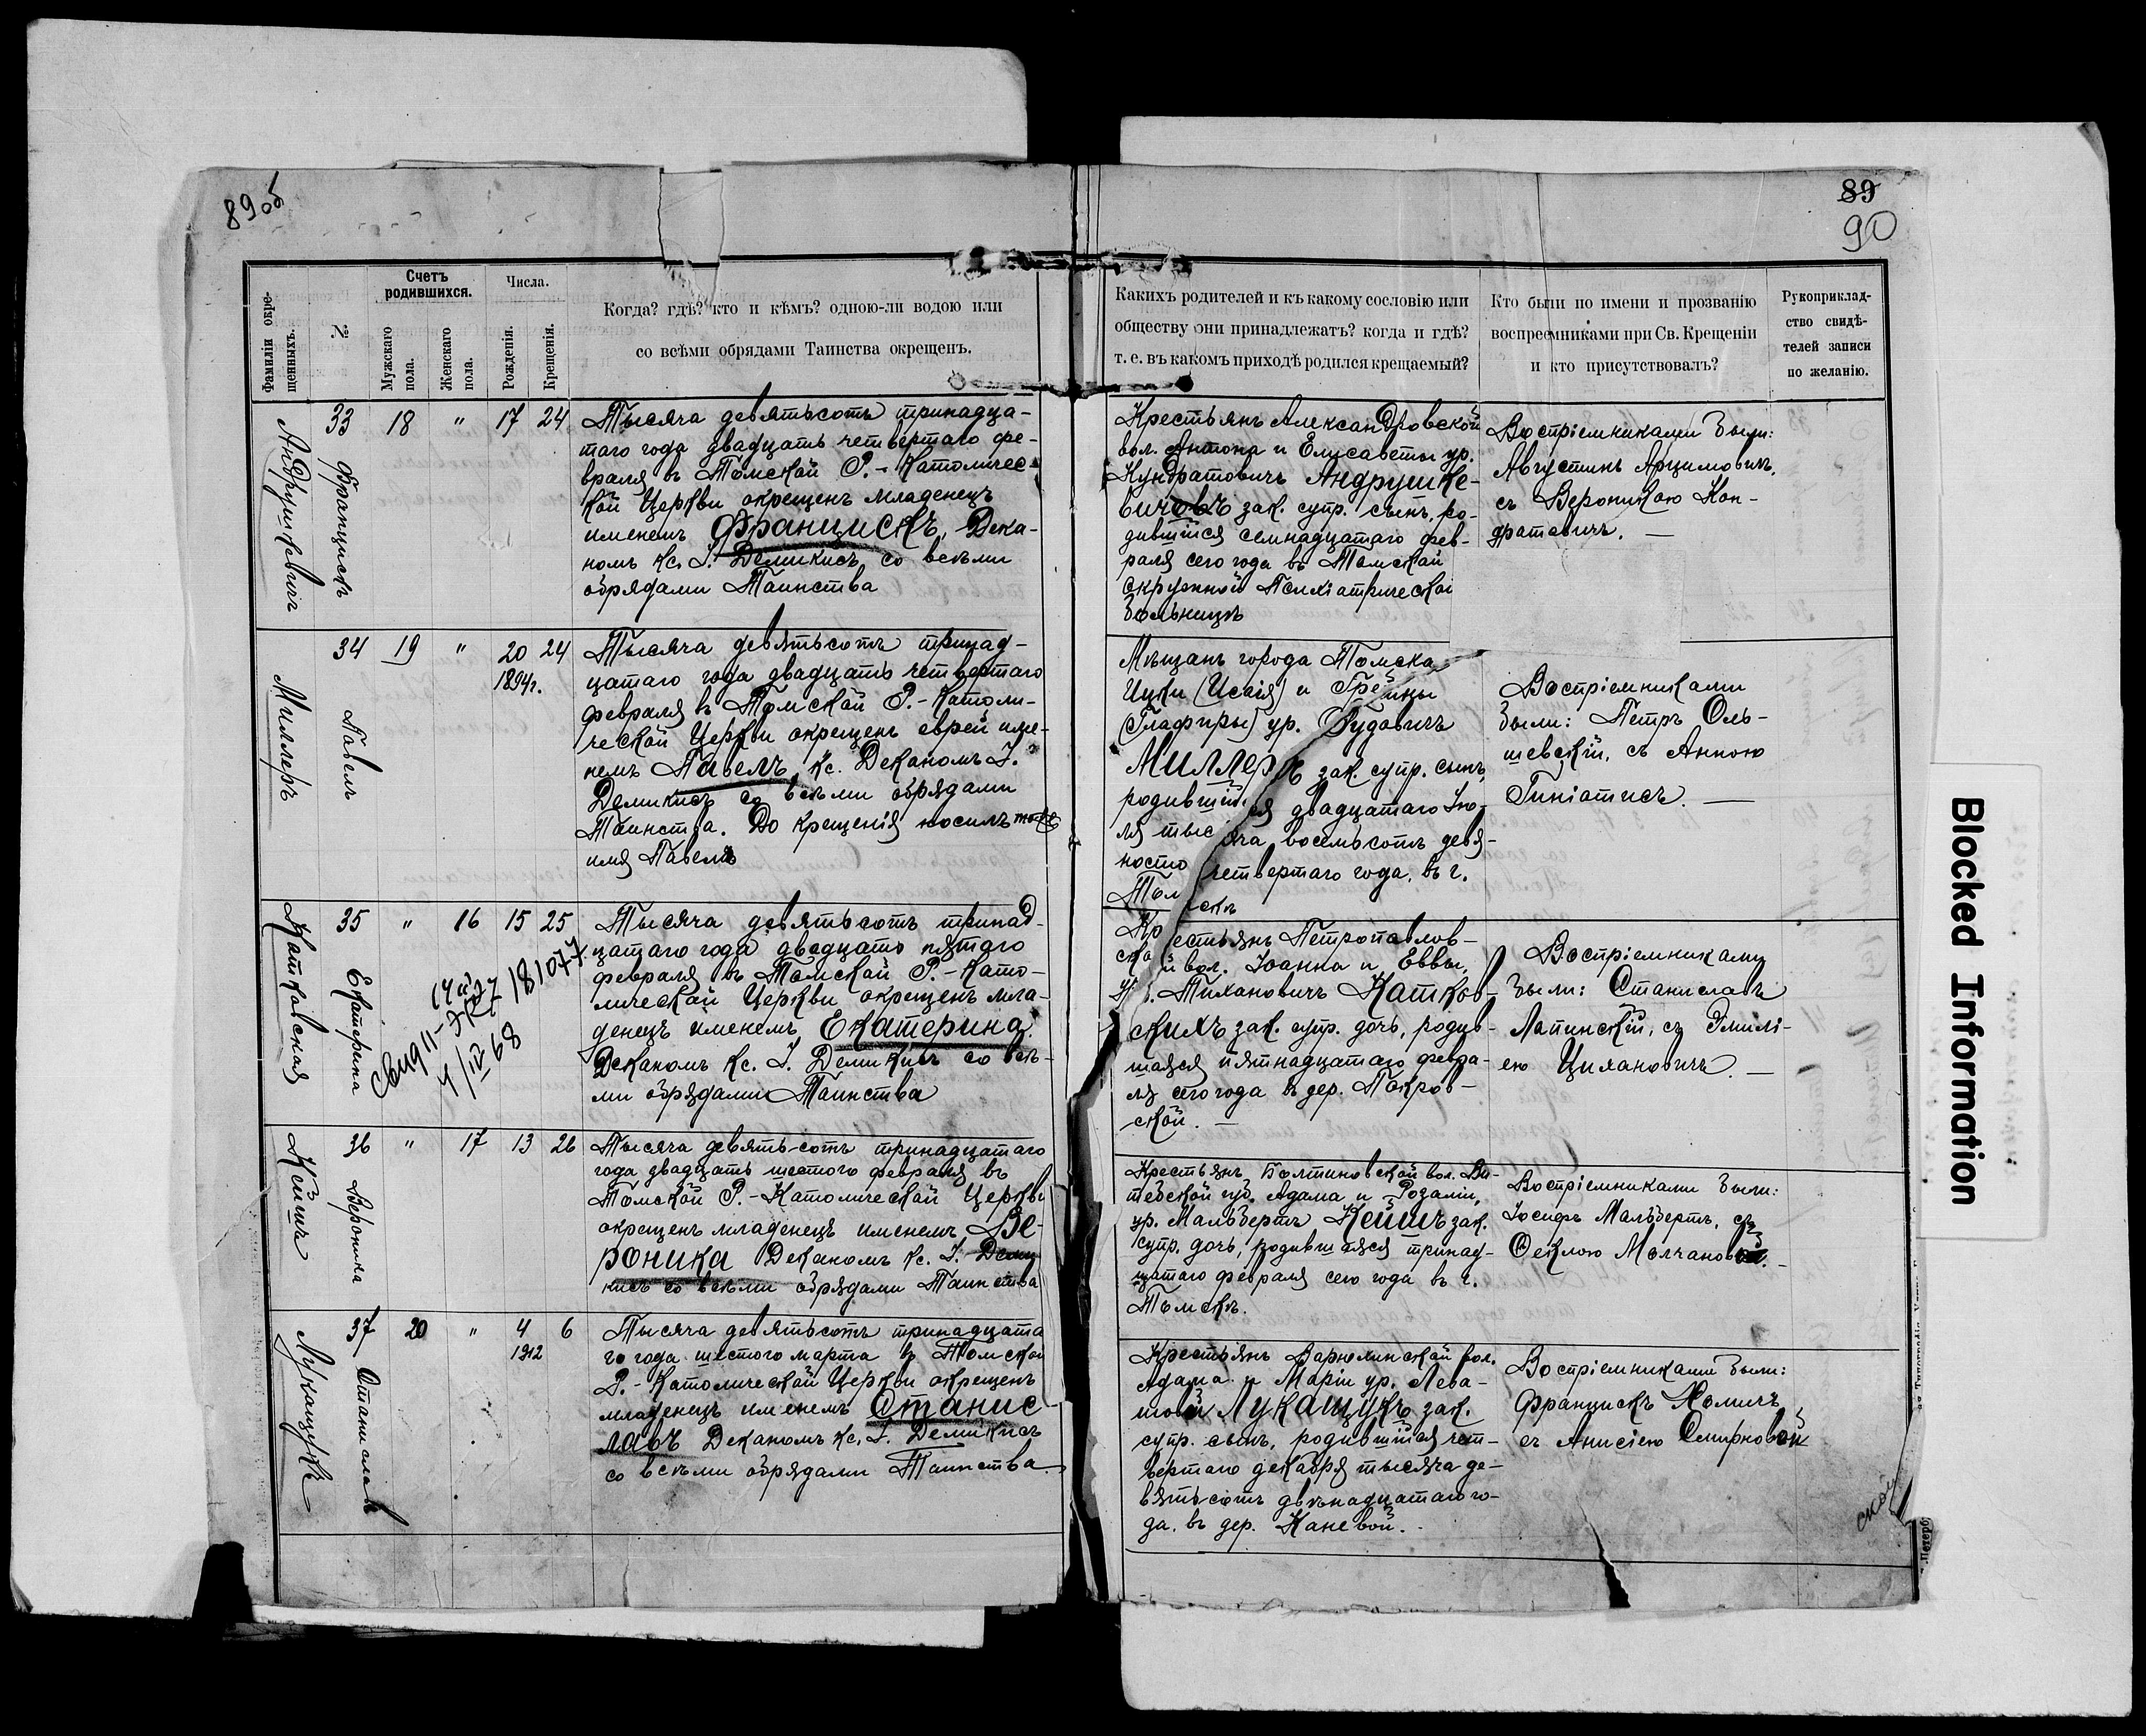 89об
89
90
Фамиліи окре-
щенныхъ.
№
Счетъ
родившихся.
Мужскаго
пола.
Женскаго
пола.
Числа.
Рожденія.
Крещенія.
Когда? гдѣ? кто и кѣмъ? одною-ли водою или
со всѣми обрядами Таинства окрещенъ.
Какихъ родителей и къ какому сословію или
обществу они принадлежатъ? когда и гдѣ?
т. е. въ какомъ приходѣ родился крещаемый?
Кто были по имени и прозванію
воспреемниками при Св. Крещеніи
и кто присутствовалъ?
Рукоприклад-
ство свидѣ-
телей записи
по желанію.
Андрушкевичъ
33
Францискъ
18 " 17 24
Тысяча девятьсотъ тринадца-
таго года двадцать четвертаго фе-
враля въ Томской Р.-Католичес-
кой Церкви окрещенъ младенецъ
именемъ Францискъ, Дека-
номъ кс. І. Демикисъ со всѣми
обрядами Таинства
Крестьянъ Александровской
вол. Антона и Елисаветы ур.
Кундратовичъ Андрушке-
вичовъ зак. супр. сынъ, ро-
дившійся семнадцатаго фев-
раля сего года въ Томской
окружной Психіатрической
больницѣ
Воспріемниками были:
Августинъ Арцимовичъ,
съ Вероникою Кон-
дратовичъ. —
Миллеръ
34
Павелъ
19 " 20 24
1894г.
Тысяча девятьсотъ тринад-
цатаго года двадцать четвертаго
февраля въ Томской Р.-Католи-
ческой Церкви окрещенъ еврей име-
немъ Павелъ, кс. Деканомъ І.
Демикисъ со всѣми обрядами
Таинства. До крещенія носилъ тоже
имя Павелъ
Мѣщанъ города Томска
Ицки (Исаія) и Грейны
(Глафиры) ур. Гудовичъ
Миллеръ зак. супр. сынъ,
родившійся двадцатаго Ію-
ля тысяча восемьсотъ девя-
носто четвертаго года, въ г.
Томскѣ
Воспріемниками
были: Петръ Оль-
шевскій, съ Анною
Гиніатисъ. —
Катковская
35
Екатерина
" 16 15 25
181077
4/IV 68
Тысяча девятьсотъ тринад-
цатаго года двадцать пятаго
февраля въ Томской Р.-Като-
лической Церкви окрещенъ мла-
денецъ именемъ Екатерина
Деканомъ кс. І. Демикисъ со всѣ-
ми обрядами Таинства
Крестьянъ Петропавлов-
ской вол. Іоанна и Еввы,
ур. Тихановичъ Катков-
скихъ зак. супр. дочь, родив-
шаяся пятнадцатаго февра-
ля сего года въ дер. Покров-
ской. —
Воспріемниками
были: Станиславъ
Лапинскій, съ Эмилі-
ею Цихановичъ. —
Кейшъ
36
Вероника
" 17 13 26
Тысяча девятьсотъ тринадцатаго
года двадцать шестого февраля въ
Томской Р.-Католической Церкви
окрещенъ младенецъ именемъ Ве-
роника Деканомъ кс. І. Деми
кисъ со всѣми обрядами Таинства
Крестьянъ Болтиновской вол. Ви-
тебской губ. Адама и Розаліи,
ур. Мальбертъ Кейшъ зак.
супр. дочь, родившаяся тринад-
цатаго февраля сего года въ г.
Томскѣ.
Воспріемниками были:
Іосифъ Мальбертъ, съ
Ѳеклою Молчановой. —
Лукащукъ
37
Станиславъ
20 " 4 6
1912
Тысяча девятьсотъ тринадцата
го года шестого марта въ Томской
Р.-Католической Церкви окрещенъ
младенецъ именемъ Станис
лавъ Деканомъ кс. І. Демикисъ
со всѣми обрядами Таинства.
Крестьянъ Варюхинской вол.
Адама и Маріи ур. Лева-
шой Лукащукъ зак.
супр. сынъ, родившійся чет-
вертаго декабря тысяча де-
вятьсотъ двѣнадцатаго го-
да, въ дер. Каневой.
Воспріемниками были:
Францискъ Хомичъ,
съ Анисіею Смирновой
ской
Blocked Information